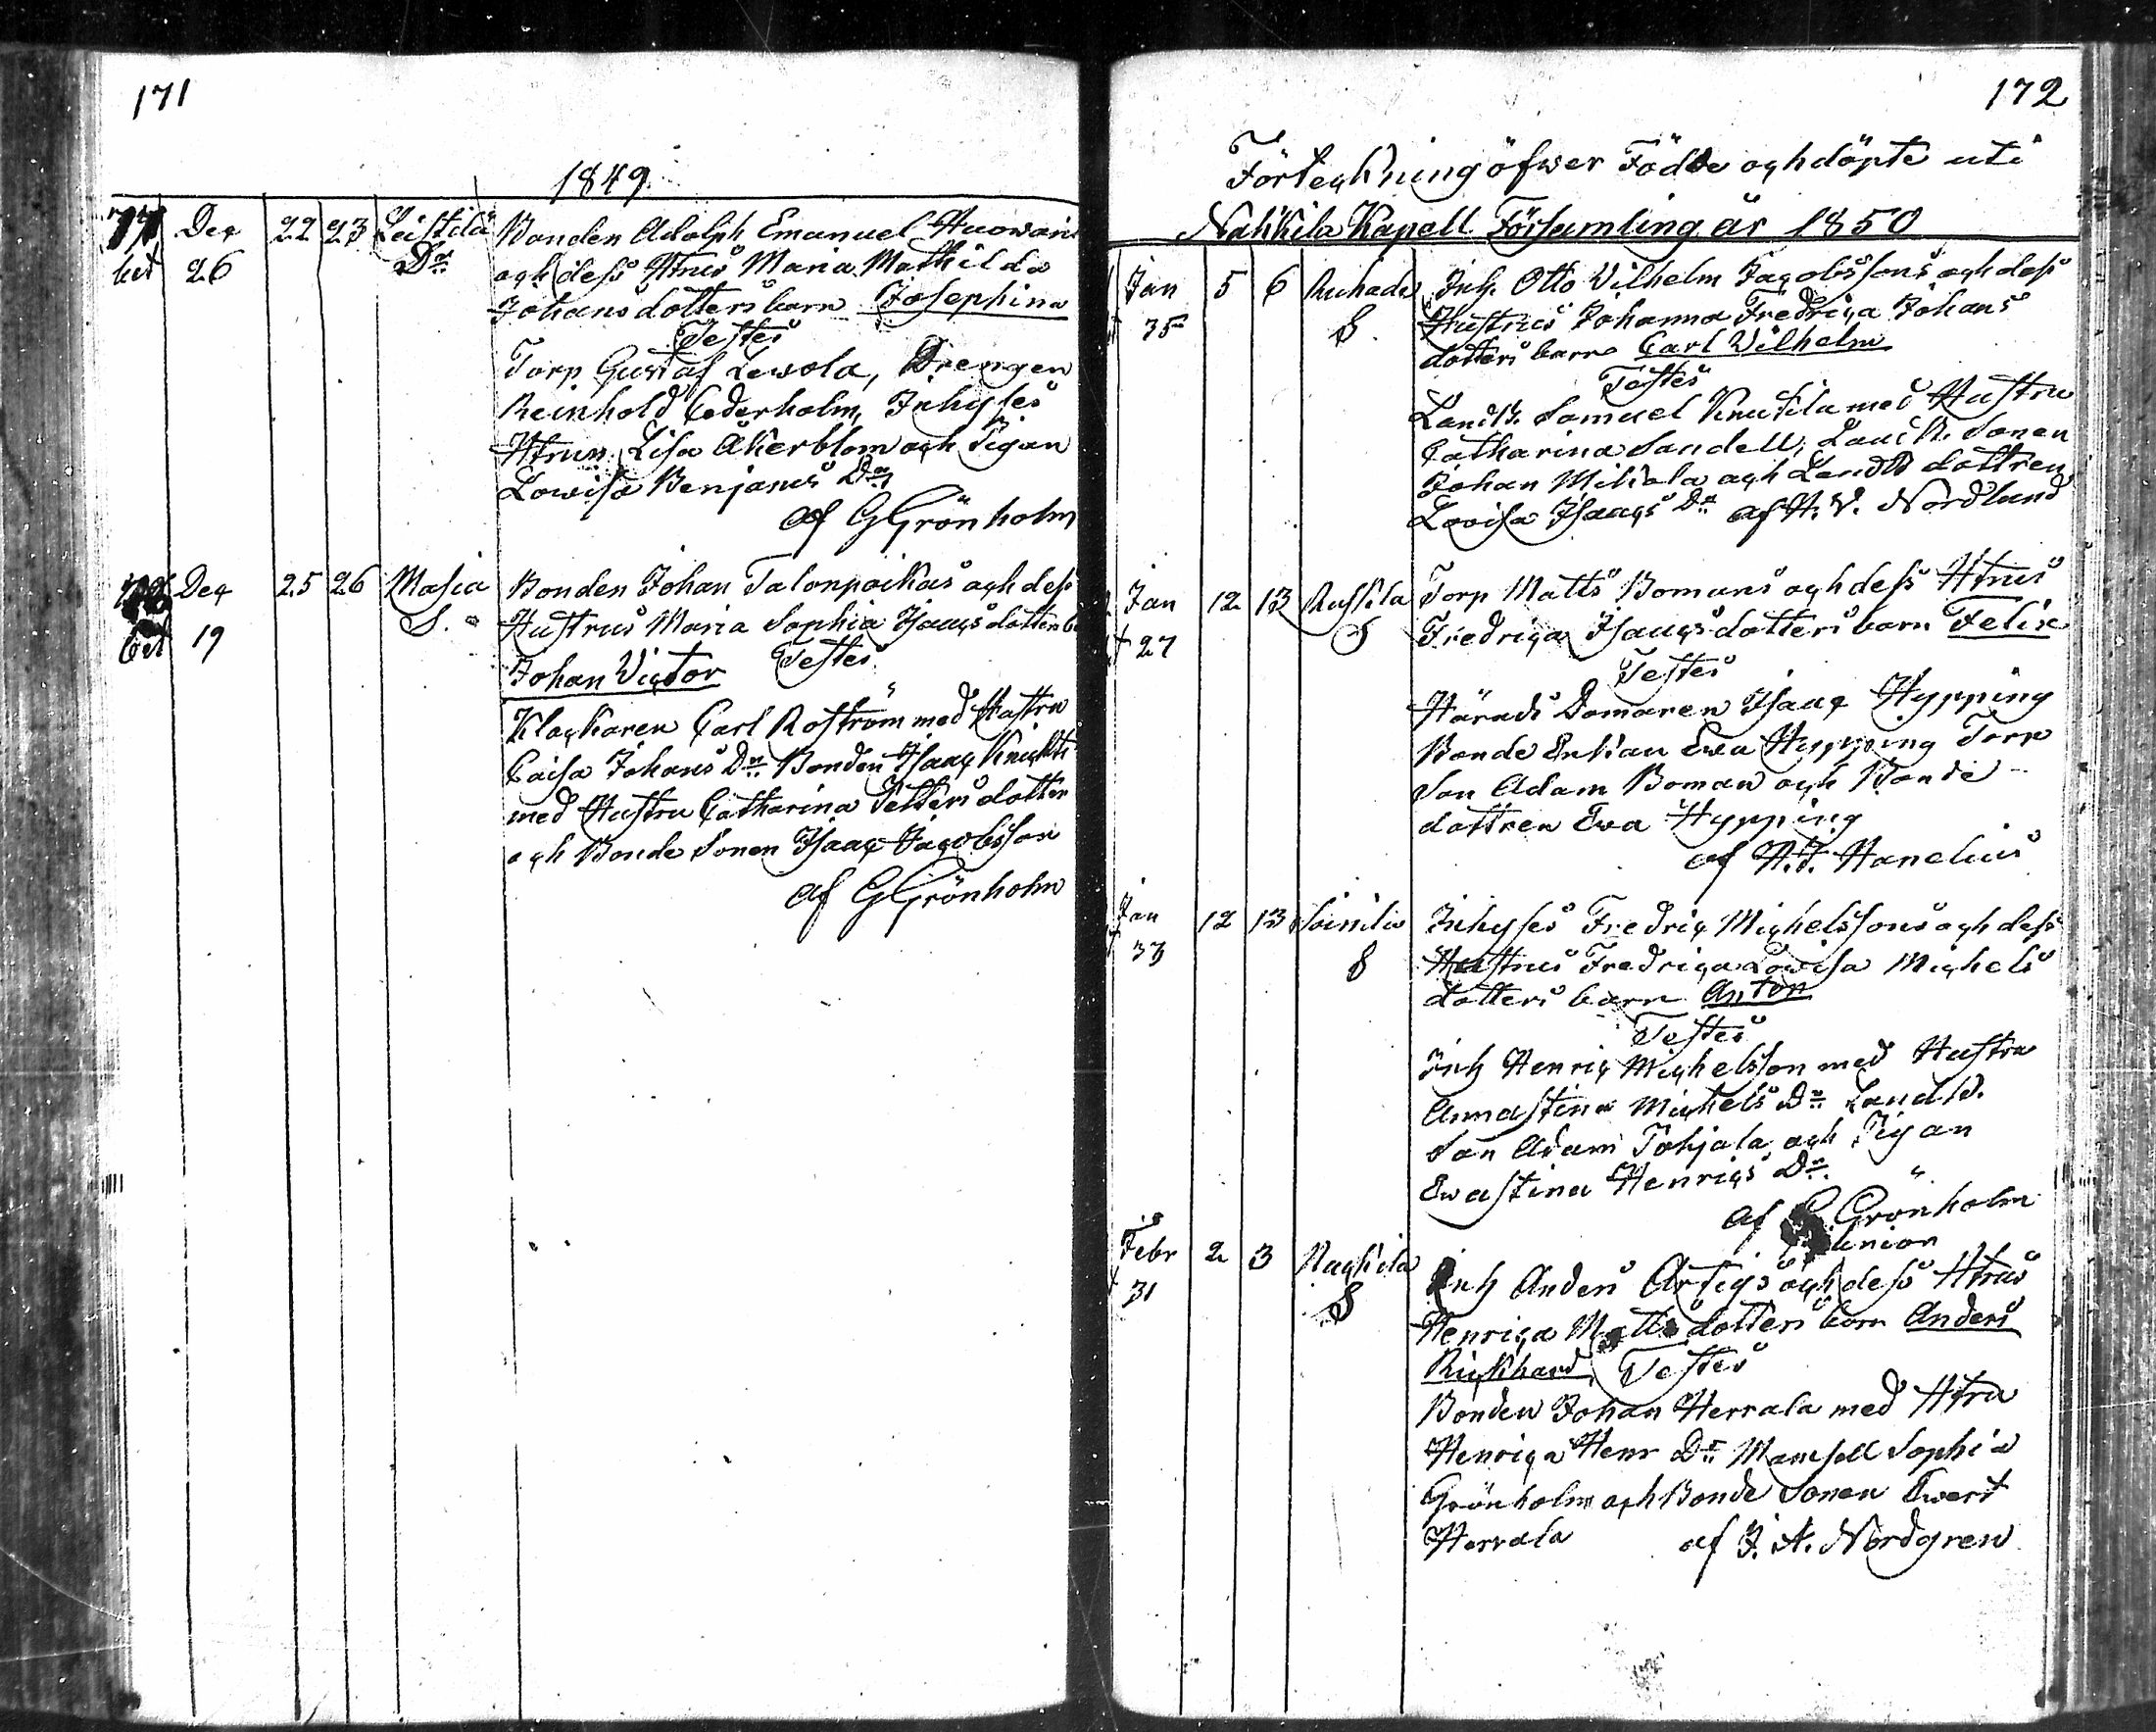 171
1849
Dec 22 23 Leistilä Bonden Adolph Emanuel
bet 26 Dr och dess Hrus Maria Mathilda
Johansdotters barn Josephina
Testes
Torp Gustaf Lewola, Drengen
Reinhold Cederholm, Inhyses
Hrun Lisa Åkerblom och Pigan
Lowisa Benjams Dr
af G Grönholm
Dec 25 26 Masia Bonden Johan Talonpoikas och dess
bet 19 S. Hustrus Maria Sophia Isaacs dotters
Johan Victor Testes
Klockaren Carl Roström med Hustru
Caisa Johans Dr Bonden Isaac
med Hustru Catharina Petters dotter
och Bonde Sonen Isaac Jacobsson
af G Grönholm
172
Förteckning öfwer Födde och döpte uti
Nakkila Kapell Församling år 1850
Jan 5 6 Inh. Otto Vilhelm Jacobssons och dess
35 S Hustrus Johanna Fredrica Johans
dotters barn Carl Wilhelm
Testes
Landb. Samuel KnuSila med Hustru
Catharina Sandell, Landb. Sonen
Johan Mikola och Landb dottren
Lovisa Isaacs Dr af H. V. Nordlund
Jan 12 13 Ruskila Torp Matts Bomans och dess Htrus
27 S Fredrica Isaacs dotters barn Felix
Testes
Härads Domaren Isaac Hypping
Bonde Enkan Ewa Hypping Torp
Son Adam Boman och Bonde
dottren Ewa Hypping
af N. J. Hanelius
Jan 12 13 Soinila Inhyses Fredric Michelssons och dess
33 S Hustrus Fredrica Lowisa Michels
dotters barn Anton
Testes
Inh Henric Michelsson med Hustru
Annastina Michels Dr Landb.
Son Adam Tohjala och Pigan
Ewastina Henrics Dr
af G Grönholm
Junior
Febr 2 3 Inh Anders Artigs och dess Htrus
31 S Henrica Matts dotters barn Anders
Rickhard, Testes
Bonden Johan Herrala med Htru
Henrica Henr Dr Mamsell Sophia
Grönholm och Bonde Sonen Ewert
Herrala af J. A. Nordgren